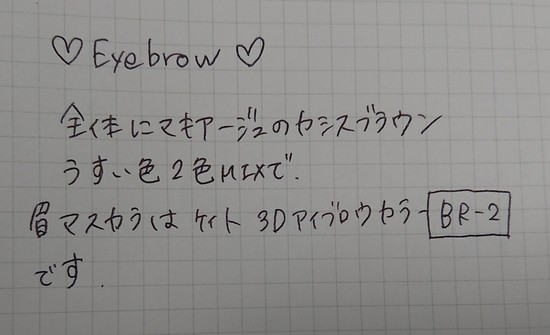 ♡Eyebrow♡
全体にマキアージュのカシスブラウン
うすい色2色MIXで.
眉マスカラは ケイト 3Dアイブロウカラー BR-2
です.